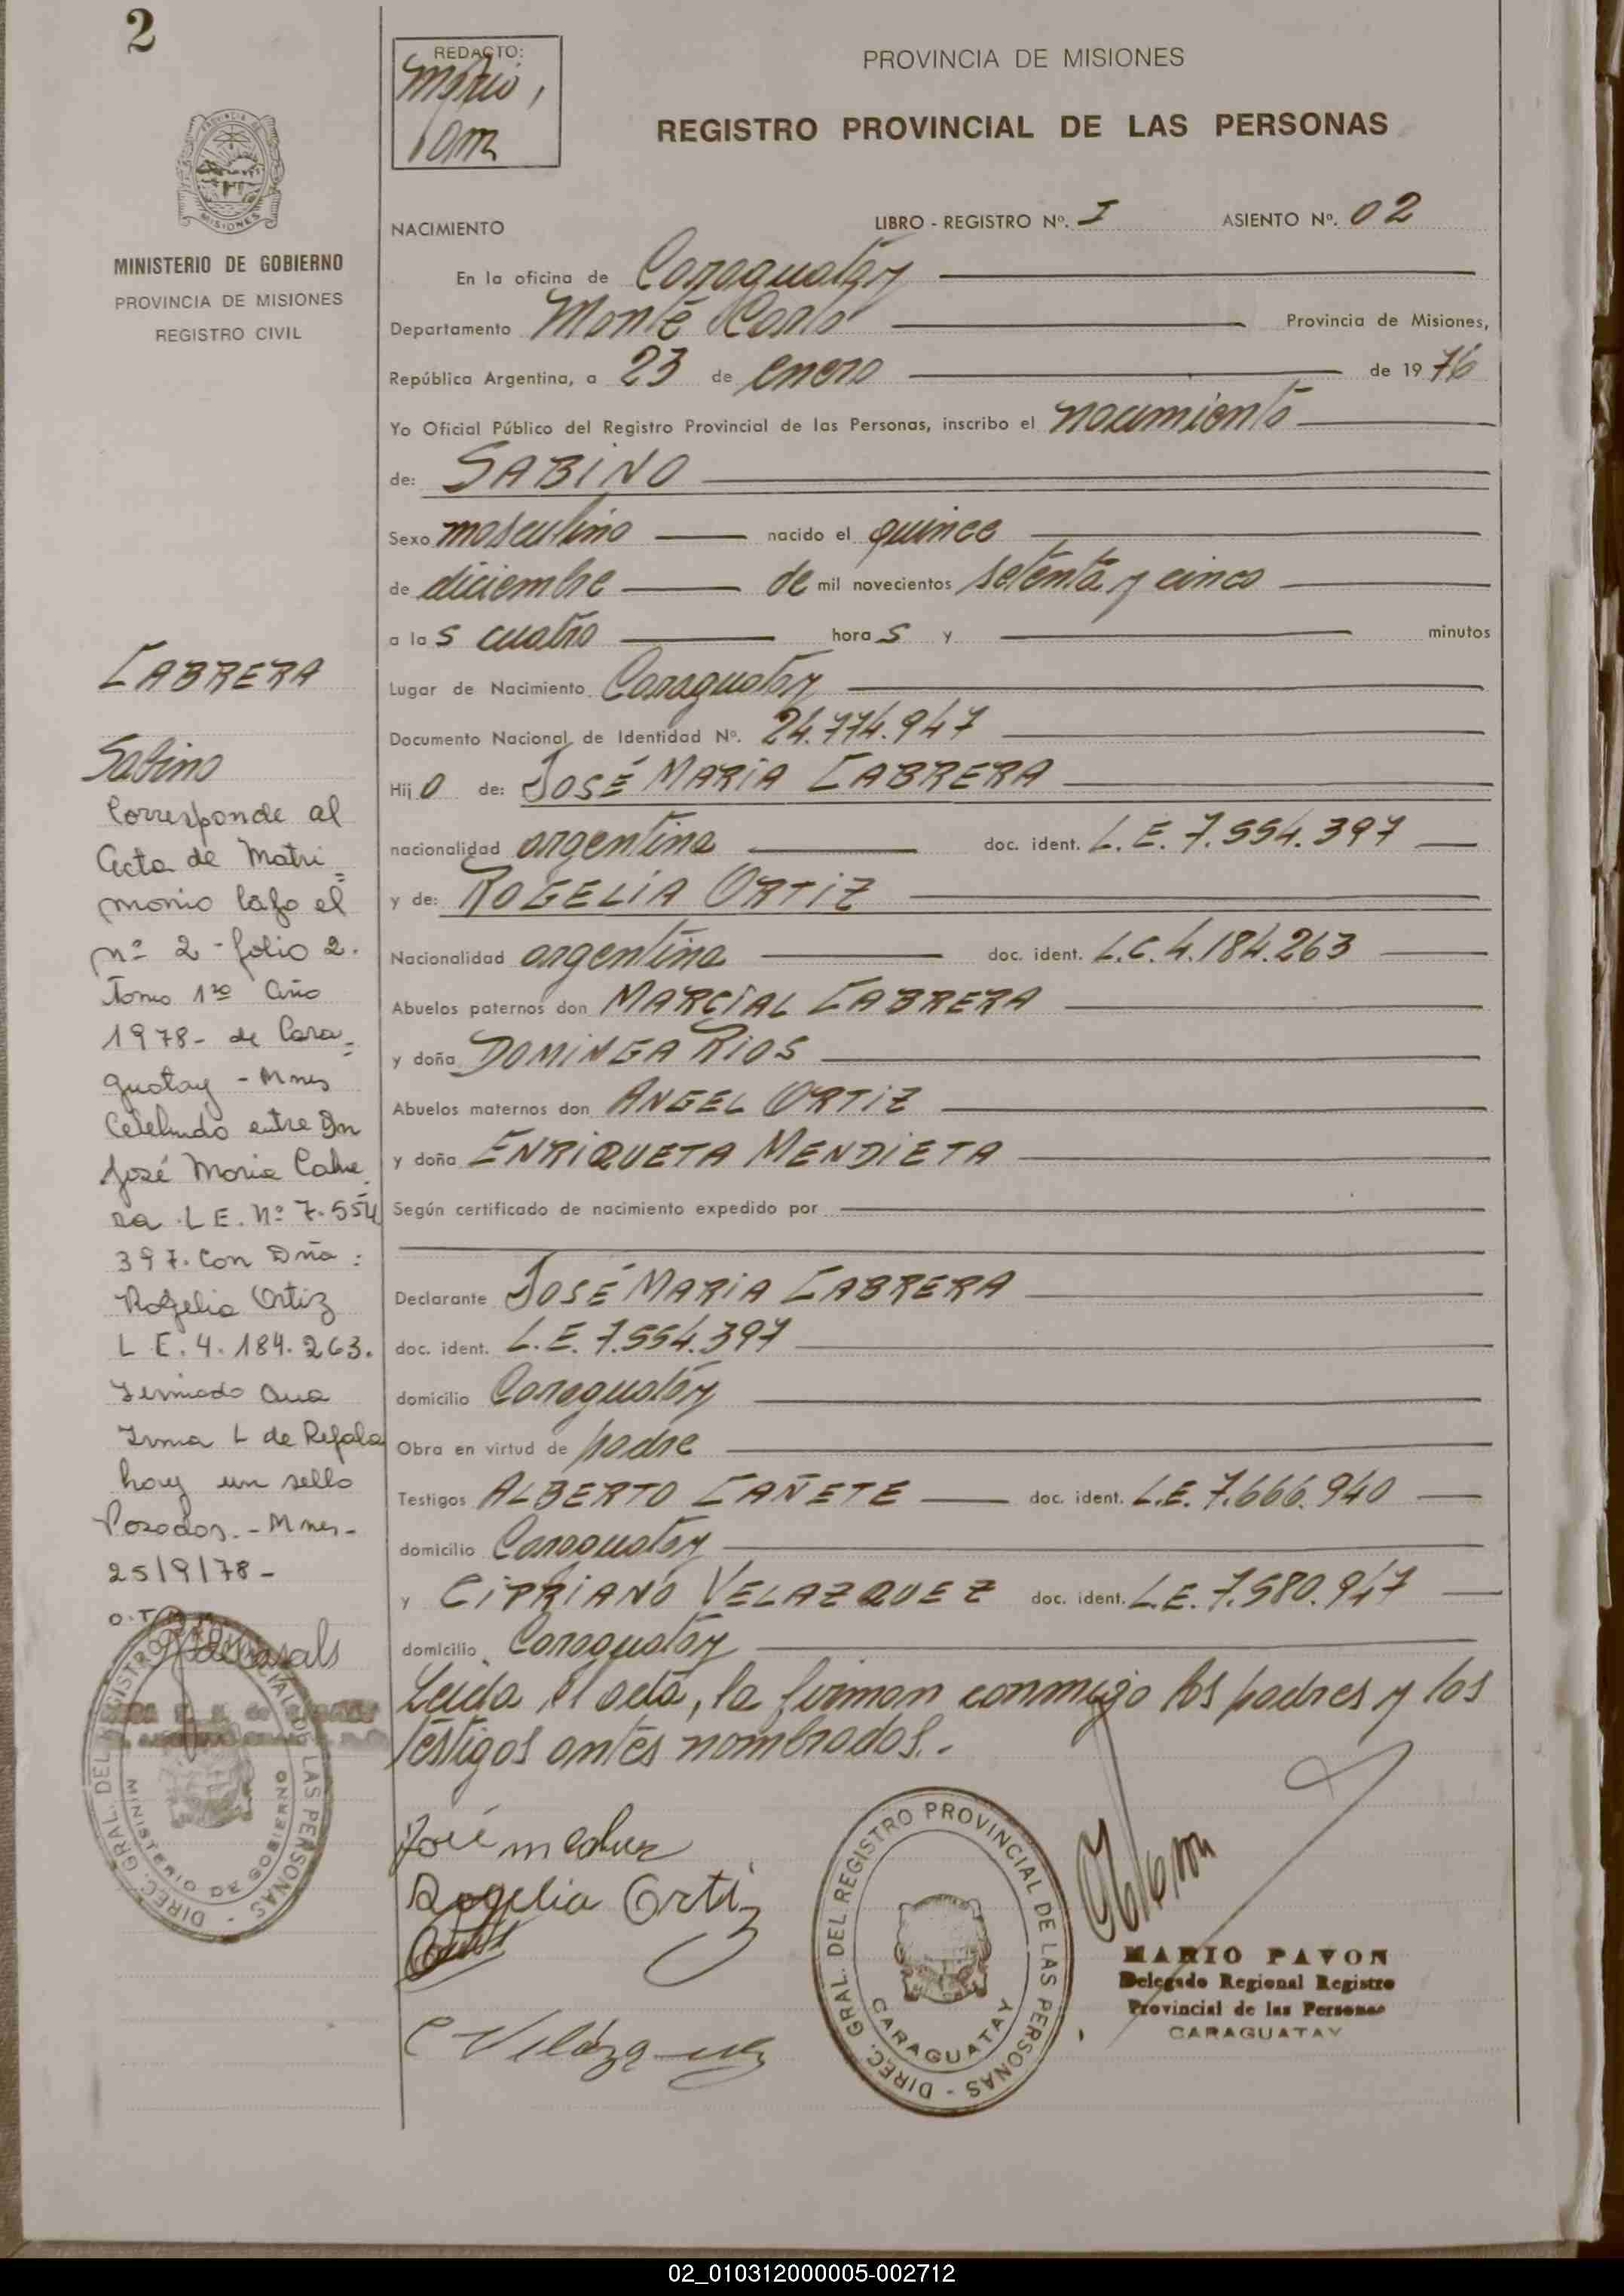 2
REDACTO:
Mario,
PROVINCIA DE MISIONES
REGISTRO PROVINCIAL DE LAS PERSONAS
PROVINCIA DE
MISIONES
MINISTERIO DE GOBIERNO
PROVINCIA DE MISIONES
REGISTRO CIVIL
NACIMIENTO LIBRO - REGISTRO Nº. I ASIENTO Nº. 02
En la oficina de Caraguatay
Departamento Monte Carlo Provincia de Misiones,
República Argentina, a 23 de enero de 1976
Yo Oficial Público del Registro Provincial de las Personas, inscribo el nacimiento
de: SABINO
Sexo masculino nacido el quince
de diciembre de mil novecientos setenta y cinco
a las cuatro horas y minutos
Lugar de Nacimiento Caraguatay
Documento Nacional de Identidad Nº. 24.774.947
Hijo de: JOSÉ MARIA CABRERA
nacionalidad argentina doc. ident. L.E. 7.554.397
y de: ROGELIA ORTIZ
Nacionalidad argentina doc. ident. L.C. 4.184.263
Abuelos paternos don MARCIAL CABRERA
y doña DOMINGA RIOS
Abuelos maternos don ANGEL ORTIZ
y doña ENRIQUETA MENDIETA
Según certificado de nacimiento expedido por
Declarante JOSÉ MARIA CABRERA
doc. ident. L.E. 7.554.397
domicilio Caraguatay
Obra en virtud de padre
Testigos ALBERTO CAÑETE doc. ident. L.E. 7.666.940
domicilio Caraguatay
y CIPRIANO VELAZQUEZ doc. ident. L.E. 7.580.947
domicilio Caraguatay
Leída el acta, la firman conmigo los padres y los
testigos antes nombrados.-
CABRERA
Sabino
Corresponde al
Acta de Matri=
monio bajo el
nº 2 - folio 2.
Tomo 1ro Año
1978- de Cara=
guatay - Mnes
Celebrado entre Dn
José Maria Cabre
ra. L E. Nº 7.554
397. Con Dña:
Rogelia Ortiz
L E. 4.184.263.
Firmado Ana
Irma L de Refala
hay un sello
Posadas.- Mnes-
25/9/78-
DIREC. GRAL. DEL REGISTRO PROVINCIAL DE LAS PERSONAS -
MINISTERIO DE GOBIERNO
Rogelia Ortiz
C Velázquez
DIREC. GRAL. DEL REGISTRO PROVINCIAL DE LAS PERSONAS -
CARAGUATAY
MARIO PAVON
Delegado Regional Registro
Provincial de las Personas
CARAGUATAY
02_010312000005-002712